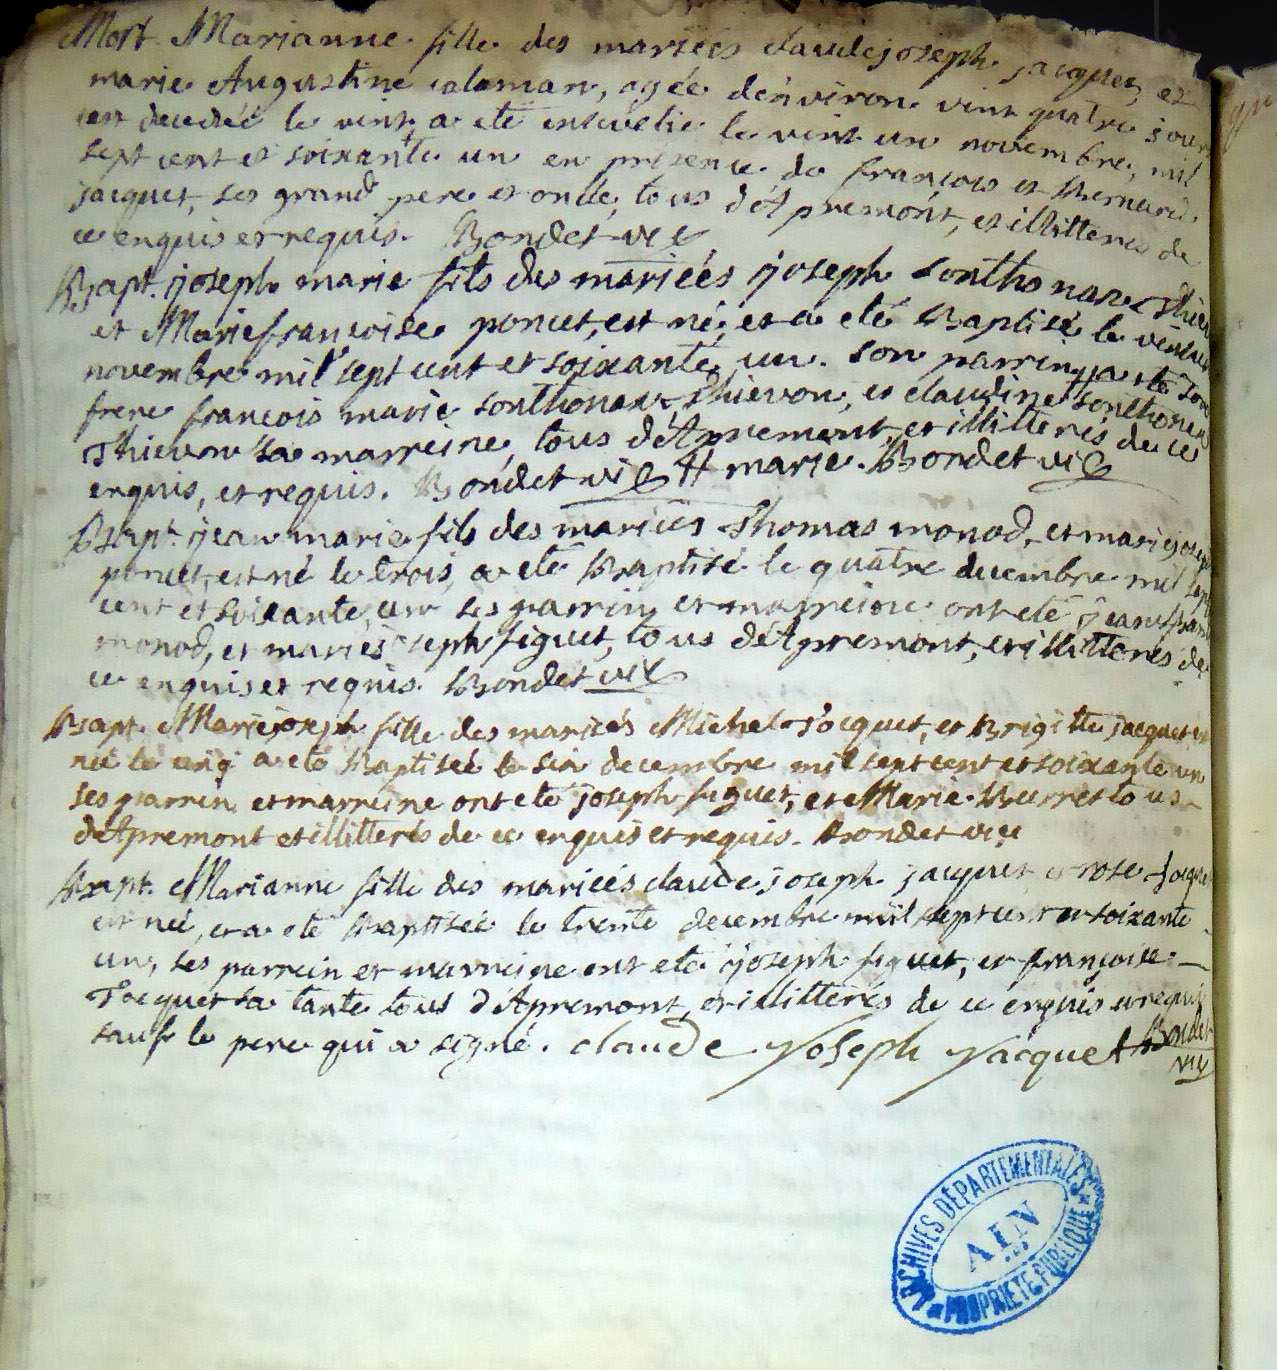 Mort. Marianne fille des mariées claude joseph jacquet, et
marie Augustine calaman, agée d'environ vint quatre jours
est decedée le vint, a eté ensevelie le vint un novembre, mil
sept cent et soixante un en présence de françois et Bernard
jacquet, ses grand pere et oncle, tous d'Apremont, et illitterés de
ce enquis et requis. Bondet vic
Bapt. joseph marie fils des mariéés joseph Sonthonax Thievon
et Marie françoise poncet, est né, et a eté Baptisé le
novembre mil sept cent et soixante, un. son parrin # a eté son
frere françois marie sonthonax Thievon, et claudine Sonthonax
Thievon sa marreine, tous d'Apremont, et illitterés de ce
enquis, et requis. Bondet vic # marie. Bondet vic
Bapt. jean marie fils des mariées Thomas monod, et marie joseph
poncet, est né le trois, a eté Baptisé le quatre decembre mil sept
cent et soixante, un ses parrin et marreine ont eté jean
monod, et marie joseph figuet, tous d'Apremont, et illitterés de
ce enquis et requis. Bondet vic
Bapt. Marie joseph fille des mariées Michel Jacquet, et Brigitte jacquet est
née le cinq a eté Baptisée le six decembre mil sept cent et soixante un
ses parrin et marreine ont eté joseph figuet, et Marie Burret tous
d'Apremont et illitterés de ce enquis et requis. Bondet vic
Bapt. Marianne fille des mariéés claude joseph jacquet et rose Jacquet
est née, et a eté Baptisée le trente decembre mil sept cent et soixante
un, ses parrein et marreine ont eté joseph figuet, et françoise
Jacquet sa tante tous d'Apremont, et illitterés de ce enquis et requis
sauf le pere qui a signé. claude Joseph Jacquet Bondet
vic
ARCHIVES DÉPARTEMENTALES
AIN
PROPRIETE PUBLIQUE